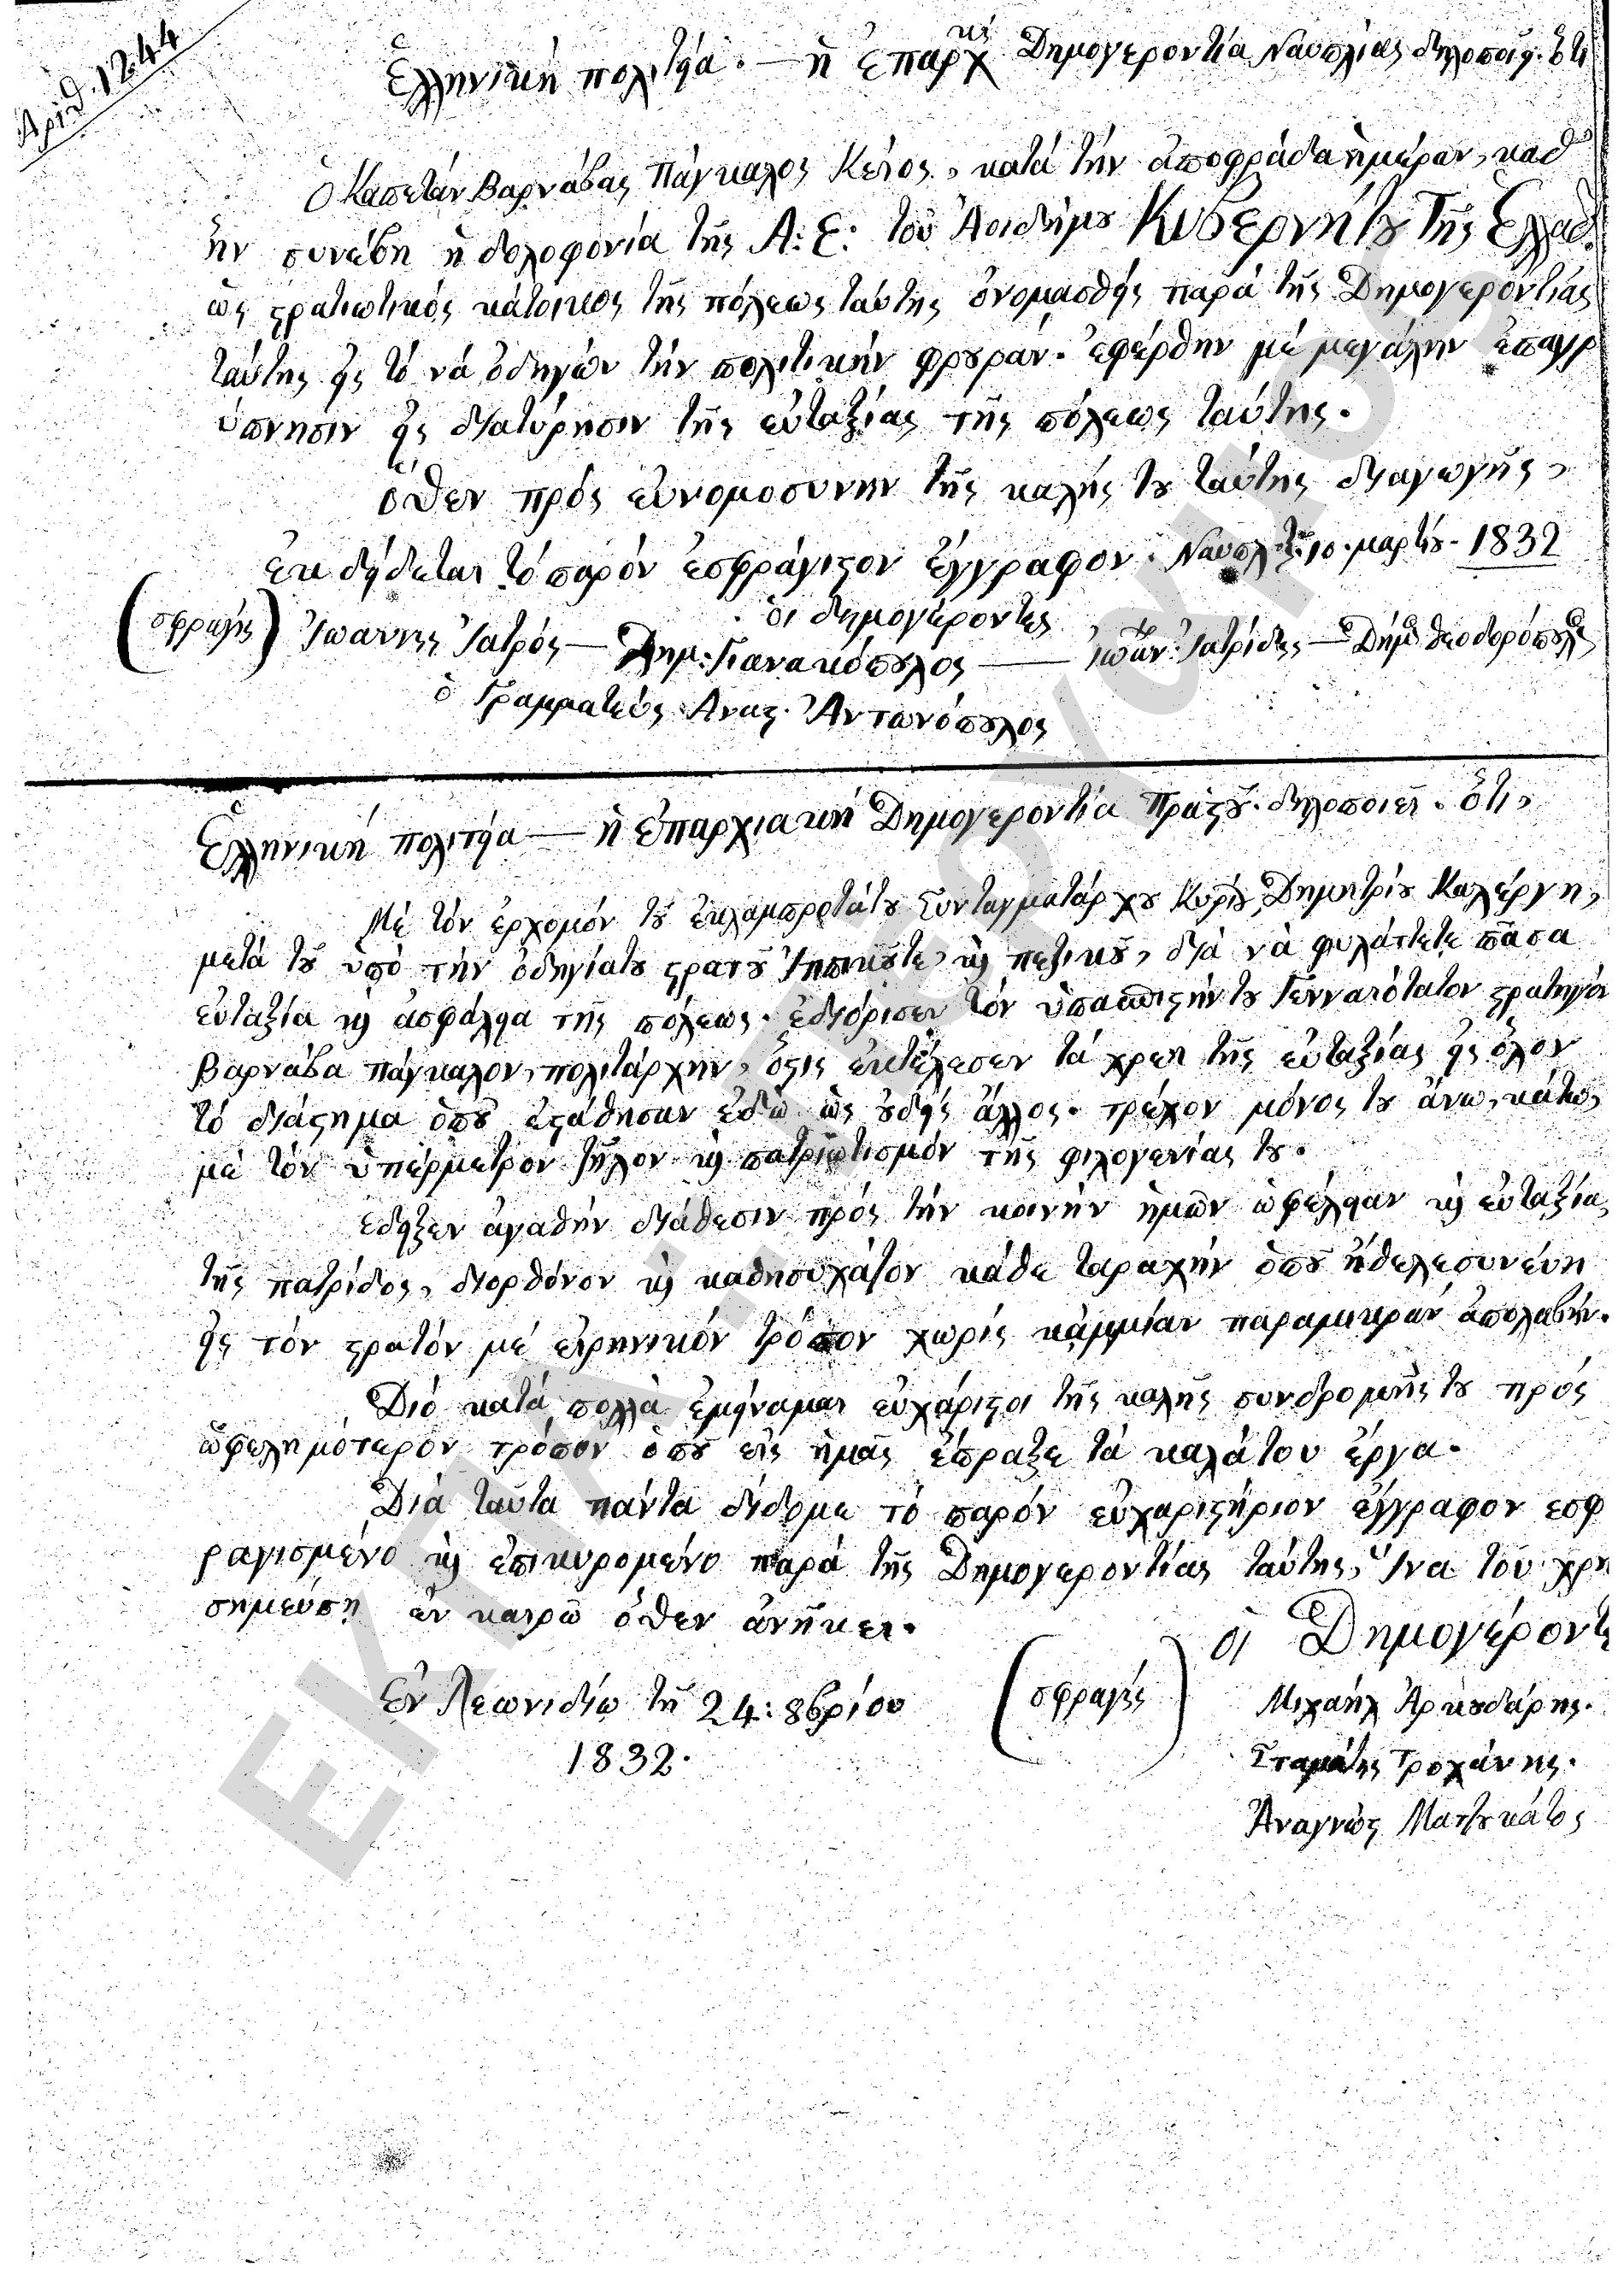 Αριθ. 1244
Ἑλληνική πολιτεία. — ἡ ἐπαρχκή Δημογεροντία Ναυπλίας δηλοποιεῖ. ὅτι
Ὁ Καπετάν Βαρνάβας Πάγκαλος Κείος, κατά τήν ἀποφράδα ἡμέραν, καθ
ἥν συνέβη ἡ δολοφονία τῆς Α: Ε: τοῦ Ἀοιδήμου Κυβερνήτου Τῆς Ἑλλάδ.
ὡς στρατιωτικός κάτοικος τῆς πόλεως ταύτης ὀνομασθείς παρά τῆς Δημογεροντίας
ταύτης εἰς τό νά ὁδηγών τήν πολιτικήν φρουράν. ἐφέρθην μέ μεγάλην ἐπαγρ
ύπνησιν εἰς διατύρησιν τῆς εὐταξίας τῆς πόλεως ταύτης.
ὅθεν πρός εὐνομοσυνην τῆς καλής του ταύτης διαγωγῆς,
ἐκδήδεται τό παρόν ἐσφράγιστον ἔγγραφον. Ναυπλ. τῇ: 10. μαρτίου - 1832
οἱ δημογέροντες
(σφραγής) Ἰωαννης Ἰατρός — Δημ: Γιανακόπουλος — Ἰωάν: Ἰατρίδης — Δήμ Θεοδορόπουλς
ὁ Γραμματεύς Αναστ. Ἀντωνόπουλος
Ἑλληνική πολιτεία — ἡ ἐπαρχιακή Δημογεροντία Πραστοῦ. δηλοποιεῖ. ὅτι,
Μέ τόν ἐρχομόν τοῦ ἐκλαμπροτάτου Συνταγματάρχου Κυρίου Δημητρίου Καλέργη,
μετά τοῦ ὑπό τήν ὁδηγίατου στρατοῦ Ἱππικοῦτε, καί πεζικοῦ, διά νά φυλάττετε πᾶσα
εὐταξία καί ἀσφάλεια τῆς πόλεως. ἐδιόρισεν τόν ὑπασπιστήν του Γενναιότατον στρατηγόν
Βαρνάβα πάγκαλον, πολιτάρχην, ὅστις ἐκτέλεσεν τά χρέη τῆς εὐταξίας εἰς ὅλον
τό διάστημα ὁπού ἐστάθησαν ἐδώ ὡς οὐδείς ἄλλος. τρέχον μόνος του ἄνω, κάτω,
μέ τόν ὑπέρμετρον ζῆλον καί πατριωτισμόν τῆς φιλογενίας του.
Εδειξεν ἀγαθήν διάθεσιν πρός τήν κοινήν ἡμῶν ὠφέλειαν καί εὐταξία,
τῆς πατρίδος, διορθόνον καί καθησυχάζον κάθε ταραχήν ὁπού ἤθελεσυνεύη
εἰς τόν στρατόν μέ εἰρηνικόν τρόπον χωρίς κἀμμίαν παραμικράν ἀπολαβήν.
Διό κατά πολλά ἐμείναμαι εὐχάριστοι τῆς καλῆς συνδρομῆς του πρός
ὠφελημότερον τρόπον ὁπού εἰς ἡμᾶς ἔπραξε τά καλάτου ἔργα.
Διά ταῦτα πάντα δίδομε τό παρόν εὐχαριστήριον ἔγγραφον εσφ
ραγισμένο καί ἐπικυρομένο παρά τῆς Δημογεροντίας ταύτης, Ἵνα τοῦ χρη
σημεύση ἐν καιρῶ ὅθεν ἀνῆκει.
οἱ Δημογέροντες
Ἐν Λεωνιδίω τῇ 24: 8βρίου (σφραγίς) Μιχαήλ Ἀρκουδάρης.
1832. Σταμάτης Τροχάνης.
Ἀναγνώς Ματζουκάτος
ΕΚΠΑ